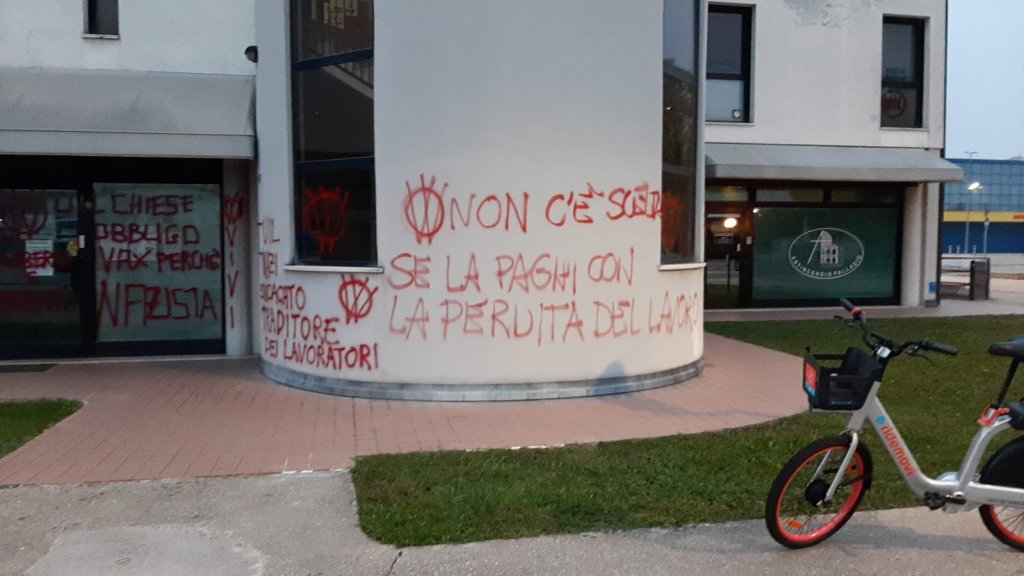 CHIESE
OBBLIGO
VAX PERCHÈ
NAZISTA
VIVI
UIL
SINDACATO
TRADITORE
DEI LAVORATORI
NON C'È SCELTA
SE LA PAGHI CON
LA PERDITA DEL LAVORO
ANTINCENDIO PALLADIO
ridemovi